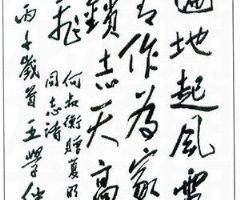 遍地起風雷
有作为家
鎖志天高
飛
何叔衡贈夏明
同志詩
丙子歲首王學仲